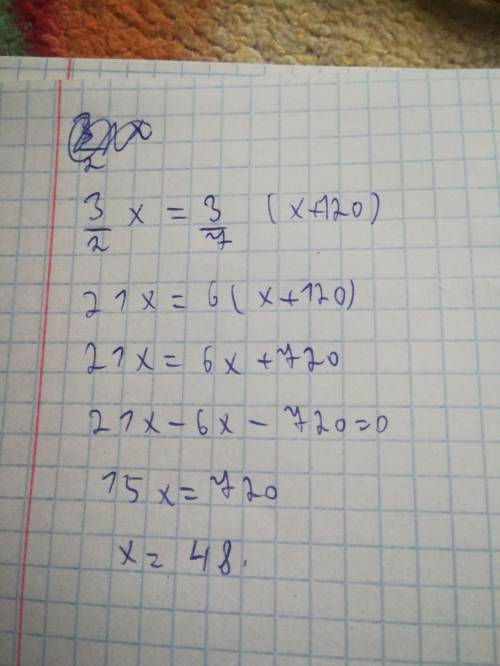 3/2 x = 3/7 (x+120)
21x = 6(x+120)
21x = 6x +720
21x - 6x - 720=0
15x = 720
x = 48.